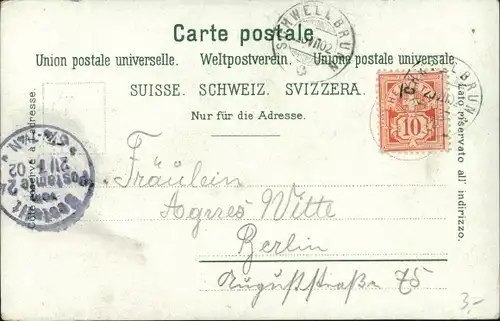 Carte postale.
SCHWELLBRUNN
Union postale universelle. Weltpostverein. Unione postale universale.
SUISSE. SCHWEIZ. SVIZZERA.
Nur für die Adresse.
Côté réservé à l'adresse.
Lato riservato all' indirizzo.
10
Bestellt
Postamte 24
Fräulein
Agnes Witte
Berlin
Auguststraße 75
3,-